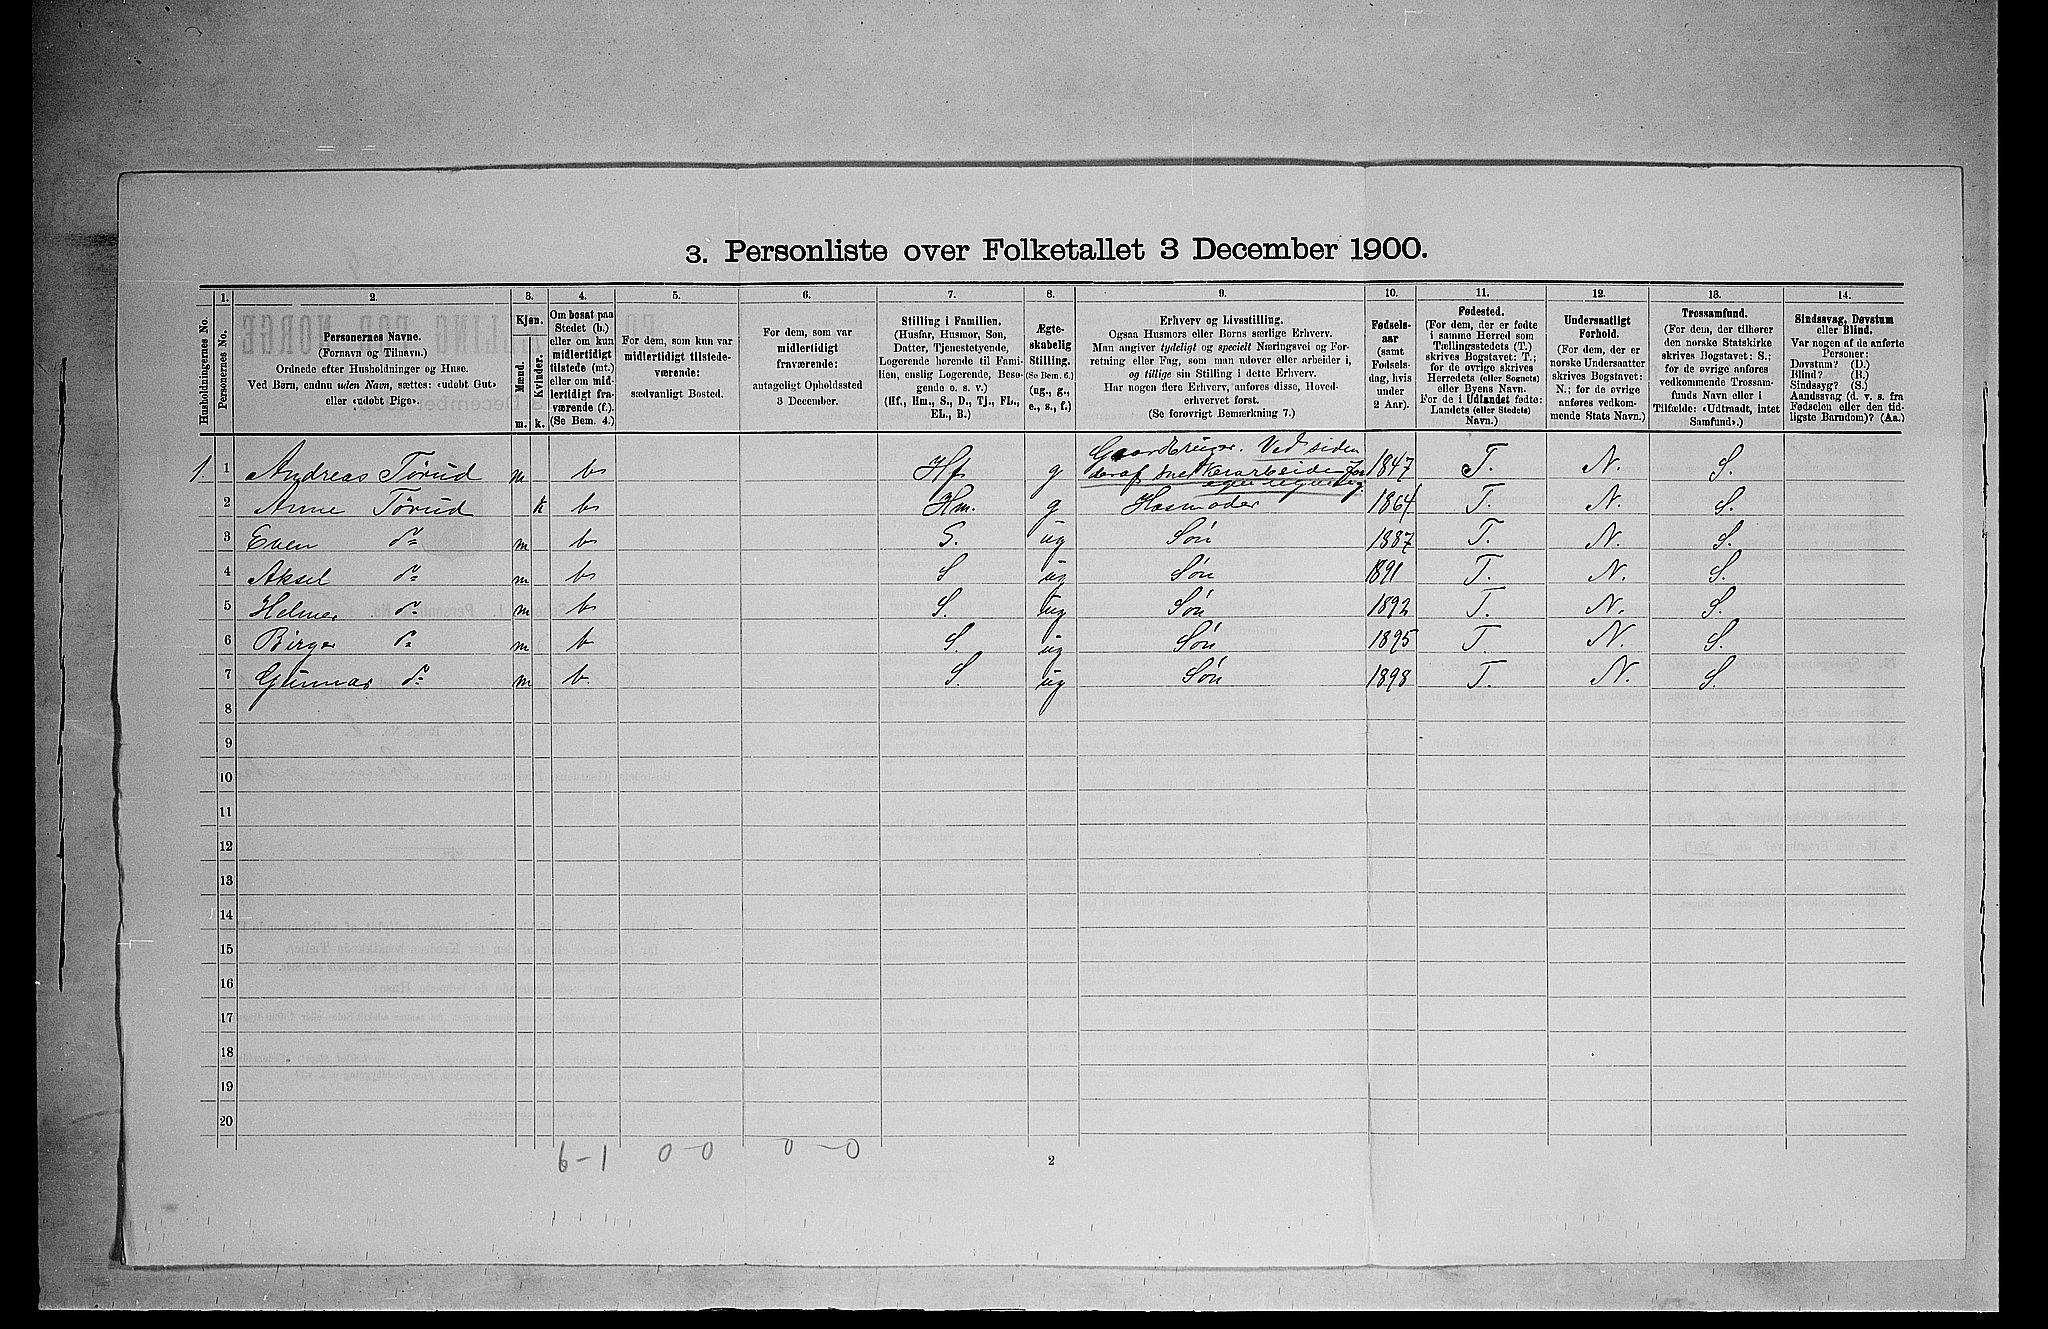 3. Personliste over Folketallet 3 December 1900.
Husholdningernes No.
1.
Personernes No.
2.
Personernes Navne.
(Fornavn og Tilnavn.)
Ordnede efter Husholdninger og Huse.
Ved Børn, endnu uden Navn, sættes: «udøbt Gut»
eller «udøbt Pige».
3.
Kjøn.
Mænd.
Kvinder.
m. k.
4.
Om bosat paa
Stedet (b.)
eller om kun
midlertidigt
tilstede (mt.)
eller om mid-
lertidigt fra-
værende (f.).
(Se Bem. 4.)
5.
For dem, som kun var
midlertidigt tilstede-
værende:
sædvanligt Bosted.
6.
For dem, som var
midlertidigt
fraværende:
antageligt Opholdssted
3 December.
7.
Stilling i Familien.
(Husfar, Husmor, Søn,
Datter, Tjenestetyende,
Logerende hørende til Fami-
lien, enslig Logerende, Besø-
gende o. s. v.)
(Hf, Hm., S., D., Tj., FL.,
EL., B.)
8.
Ægte-
skabelig
Stilling.
(Se Bem. 6.)
(ug., g.,
e., s., f.)
9.
Erhverv og Livsstilling.
Ogsaa Husmors eller Børns særlige Erhverv.
Man angiver tydeligt og specielt Næringsvei og For-
retning eller Fag, som man udøver eller arbeider i,
og tillige sin Stilling i dette Erhverv.
Har nogen flere Erhverv, anføres disse, Hoved-
erhvervet først.
(Se forøvrigt Bemærkning 7.)
10.
Fødsels-
aar
(samt
Fødsels-
dag, hvis
under
2 Aar).
11.
Fødested.
(For dem, der er fødte
i samme Herred som
Tællingsstedets (T.)
skrives Bogstavet: T.;
for de øvrige skrives
Herredets (eller Sognets)
eller Byens Navn.
For de i Udlandet fødte:
Landets (eller Stedets)
Navn.)
12.
Undersaatligt
Forhold.
(For dem, der er
norske Undersaatter
skrives Bogstavet:
N.; for de øvrige
anføres vedkom-
mende Stats Navn.)
13.
Trossamfund.
(For dem, der tilhører
den norske Statskirke
skrives Bogstavet: S.;
for de øvrige anføres
vedkommende Trossam-
funds Navn eller i
Tilfælde: «Udtraadt, intet
Samfund».)
14.
Sindssvag, Døvstum
eller Blind.
Var nogen af de anførte
Personer:
Døvstum? (D.)
Blind? (B.)
Sindssyg? (S.)
Aandssvag (d. v. s. fra
Fødselen eller den tid-
ligste Barndom)? (Aa.)
Gaardbruger. Ved siden
1. 1 Andreas Tørud m b Hf g deraf Snekkerarbeide for 1847 T. N. S.
egen regning
2 Anne Tørud k b Hm. g Husmoder 1864 T. N. S.
3 Even do m b S. ug Søn 1887 T. N. S.
4 Aksel do m b S ug Søn 1891 T. N. S.
5 Helmer do m b S. ug Søn 1892 T. N. S.
6 Birger do m b S. ug Søn 1895 T. N. S.
7 Gunnar do m b. S. ug Søn 1898 T. N. S.
8
9
10
11
12
13
14
15
16
17
18
19
20
6-1 0-0 0-0
2